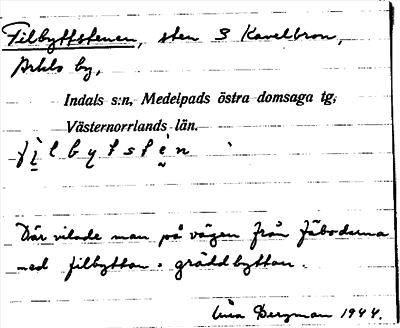 Filbyttstenen, sten S Kavelbron,
by,
Indals s:n, Medelpads östra domsaga tg,
Västernorrlands län.
fi̱lbytste̱n
Där vilade man på vägen från Fäbodarna
med filbyttan o. gräddbyttan.
Bergman 1944.